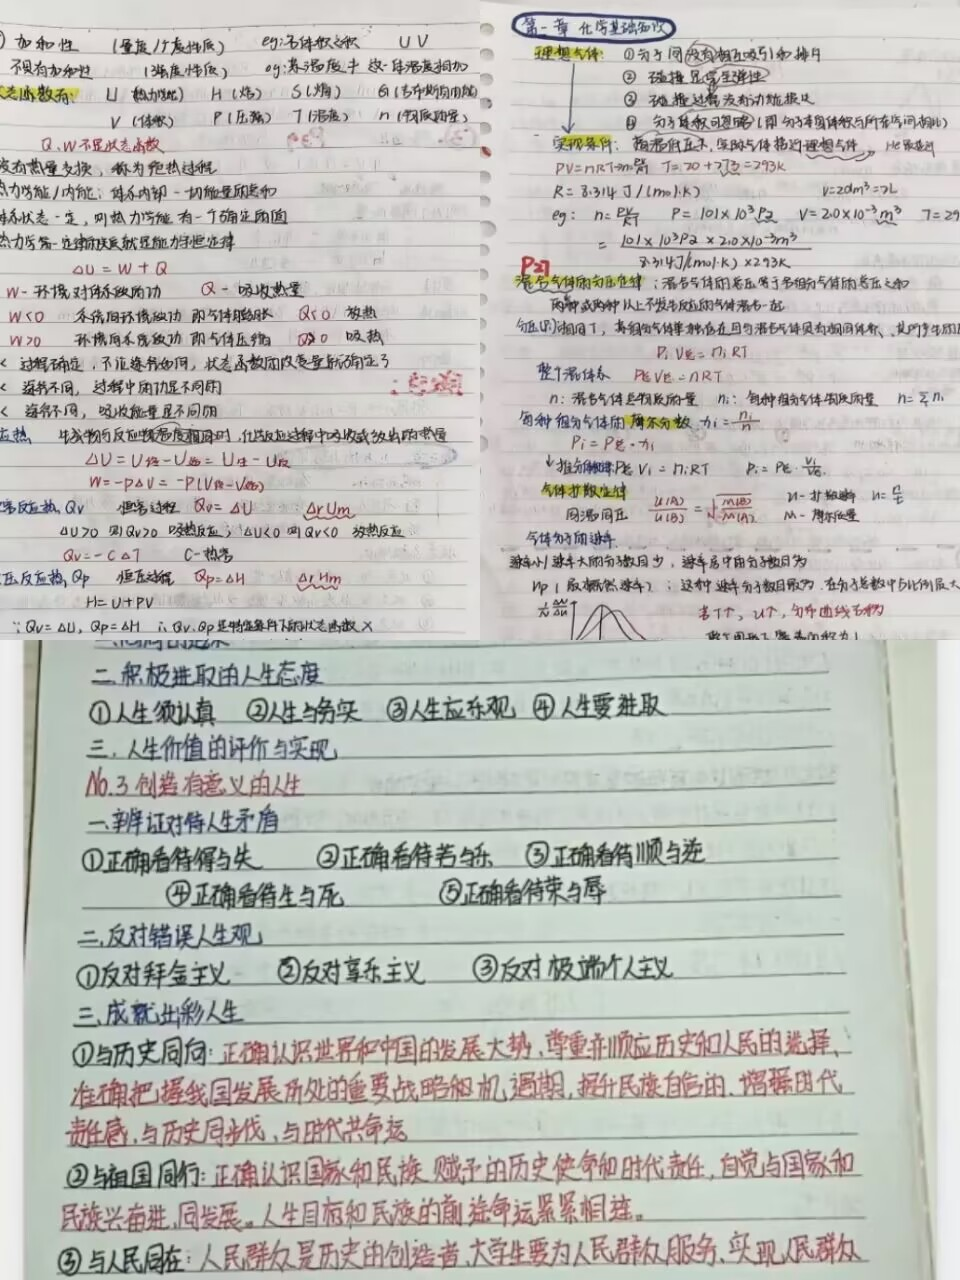 加和性 (量度/广度性质) eg:总体积之和 U V
不具有加和性 (强度性质)
状态函数有: U (热力学能) H (焓) S (熵) G (吉布斯自由能)
V (体积) P (压强) T (温度) n (物质的量)
Q、W不是状态函数
没有热量交换,称为绝热过程
热力学能/内能:体系内部一切能量的总和
体系状态一定,则热力学能有一个确定的值
ΔU = W + Q
W - 环境对体系做的功 Q - 吸收热量
W<0 体系用环境做功 即气体膨胀 Q<0 放热
W>0 环境用系统做功 即气体压缩 Q>0 吸热
过程确定,不论途径如何,状态函数的改变量就确定了
途径不同,过程中的功是不同的
途径不同,吸收能量是不同的
应热 生成物与反应物温度相同时,化学反应过程中吸收或放出的热量
ΔU = U终 - U始 = U生 - U反
W = -PΔV = -P(V终-V始)
反应热,Qv 恒容过程 Qv = ΔU ΔrUm
ΔU>0 则Qv>0 吸热反应; ΔU<0 则Qv<0 放热反应
Qv = -CΔT C-热容
压反应热,Qp 恒压过程 Qp=ΔH ΔrHm
H=U+PV
∵ Qv=ΔU, Qp=ΔH ∴ Qv、Qp是特定条件下的状态函数 ×
第一章 化学基础知识
理想气体: ①分子间没有相互吸引和排斥
②碰撞是完全弹性
③碰撞过程没有动能损失
④分子体积可忽略(即分子本身体积与所在空间相比)
实现条件:高温低压下,实际气体接近理想气体
PV=nRT T=20+273=293K
R=8.314 J/(mol·K)
eg: n=PV/RT P=101×10³Pa V=2.0×10⁻³m³ T=29
= 101×10³Pa×2.0×10⁻³m³
8.314J/(mol·K)×293K
P27
混合气体的分压定律:混合气体的总压等于各组分气体的分压之和
两种或两种以上不发生反应的气体混合在一起
分压(Pi)相同T,某组分气体单独存在且与混合气体具有相同体积
Pi V总 = ni RT
整个混体系 P总V总 = nRT
n:混合气体总物质的量 ni:每种组分气体物质的量 n=Σni
每种组分气体的摩尔分数 xi = ni/n
Pi = P总·xi
P总Vi = niRT Pi = P总·Vi/V总
气体扩散定律 u(A)/u(B) = √M(B)/M(A) u-扩散速率
同温同压 M-摩尔质量
气体分子的速率
速率小速率大的分子数目少,速率居中的分子数目多
Up(最概然速率):这种速率分子数目最多,在分子总数中占比例最大
若T↑,U↑,
二.积极进取的人生态度
①人生须认真 ②人生当务实 ③人生应乐观 ④人生要进取
三.人生价值的评价与实现
No.3 创造有意义的人生
一.辩证对待人生矛盾
①正确看待得与失 ②正确看待苦与乐 ③正确看待顺与逆
④正确看待生与死 ⑤正确看待荣与辱
二.反对错误人生观
①反对拜金主义 ②反对享乐主义 ③反对极端个人主义
三.成就出彩人生
①与历史同向:正确认识世界和中国的发展大势,尊重并顺应历史和人民的选择,
准确把握我国发展所处的重要战略机遇期,提升民族自信的,增强时代
责任感,与历史同步伐,与时代共命运
②与祖国同行:正确认识国家和民族赋予的历史使命和时代责任,自觉与国家和
民族共奋进,同发展。人生目标和民族的前途命运紧紧相连。
③与人民同在:人民群众是历史的创造者,大学生要为人民群众服务,实现人民群众